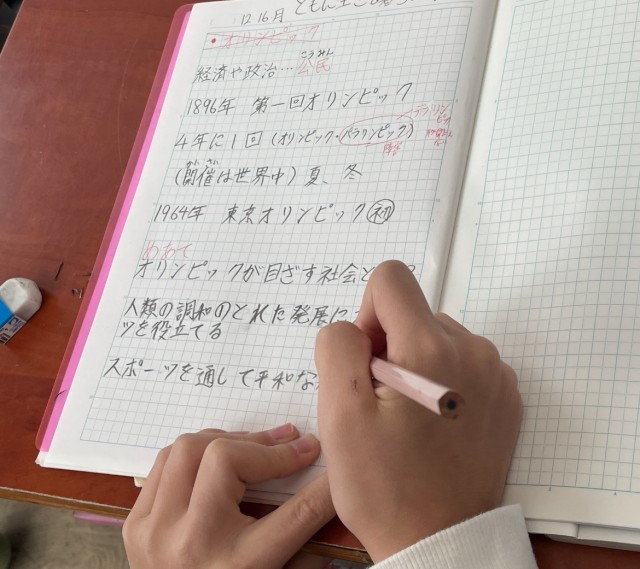 12 16月 ともに
オリンピック
経済や政治…公民
こうみん
1896年 第一回オリンピック
4年に1回 (オリンピック・パラリンピック)
(開催は世界中) 夏、冬
かいさい
1964年 東京オリンピック 初
めあて
オリンピックが目ざす社会と
人類の調和のとれた発展に
ツを役立てる
スポーツを通して平和な